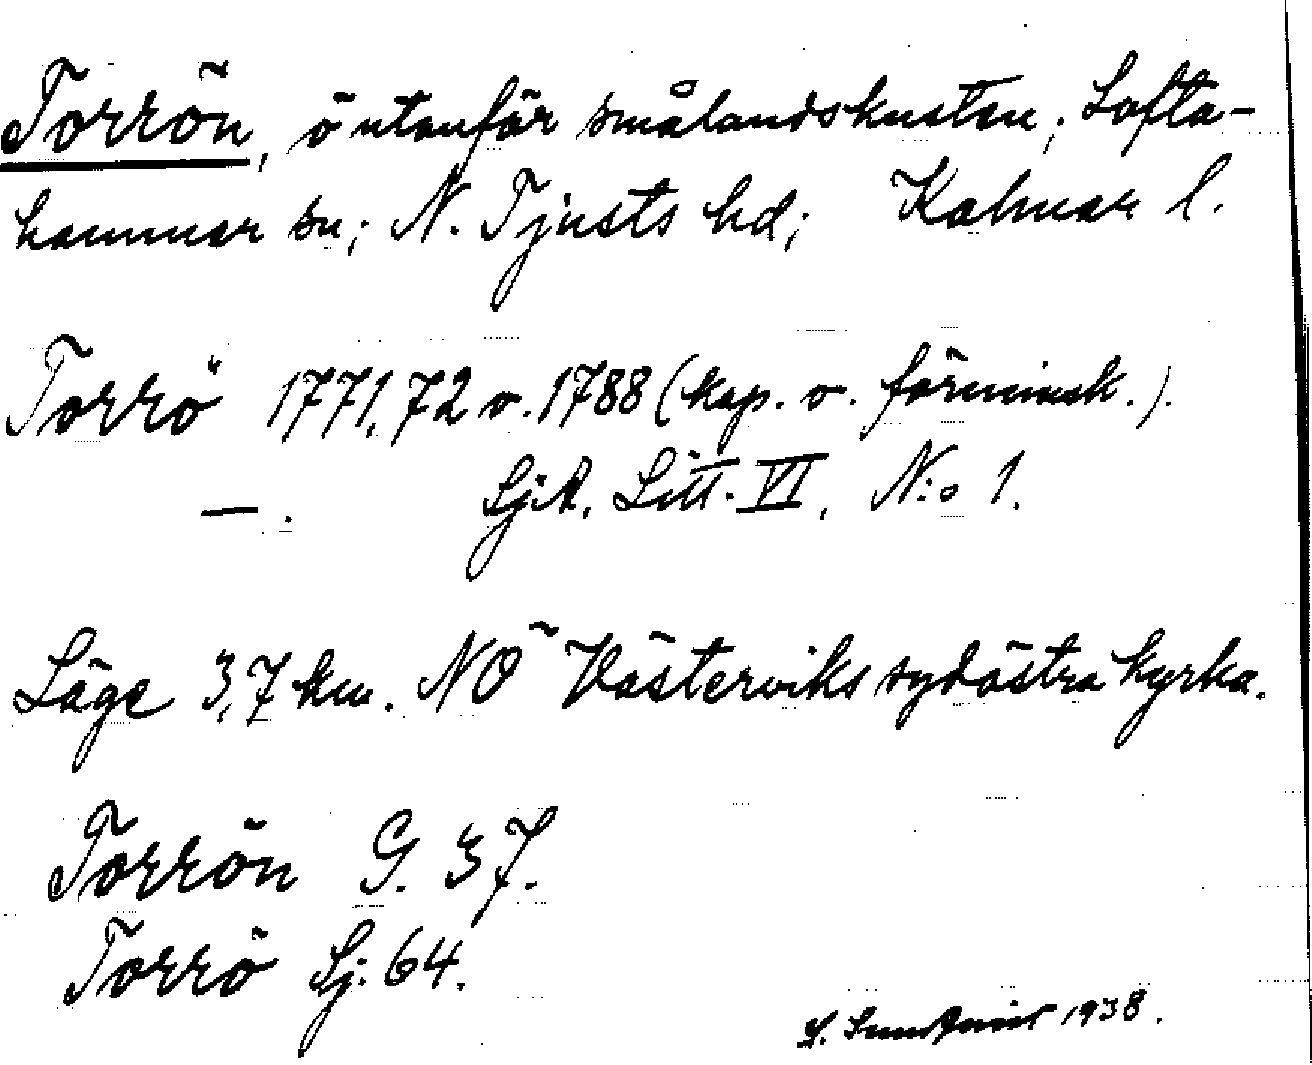 Torrön, ö utanför smålandskusten; Lofta-
hammar sn; N. Tjusts hd; Kalmar l.
Torrö 1771,72 o. 1788 (kop. o. förminsk.).
—. Sj.A. Litt. VI, N:o 1.
Läge 3,7 km. NO Västerviks sydöstra kyrka.
Torrön G. 37.
Torrö Sj. 64.
1938.